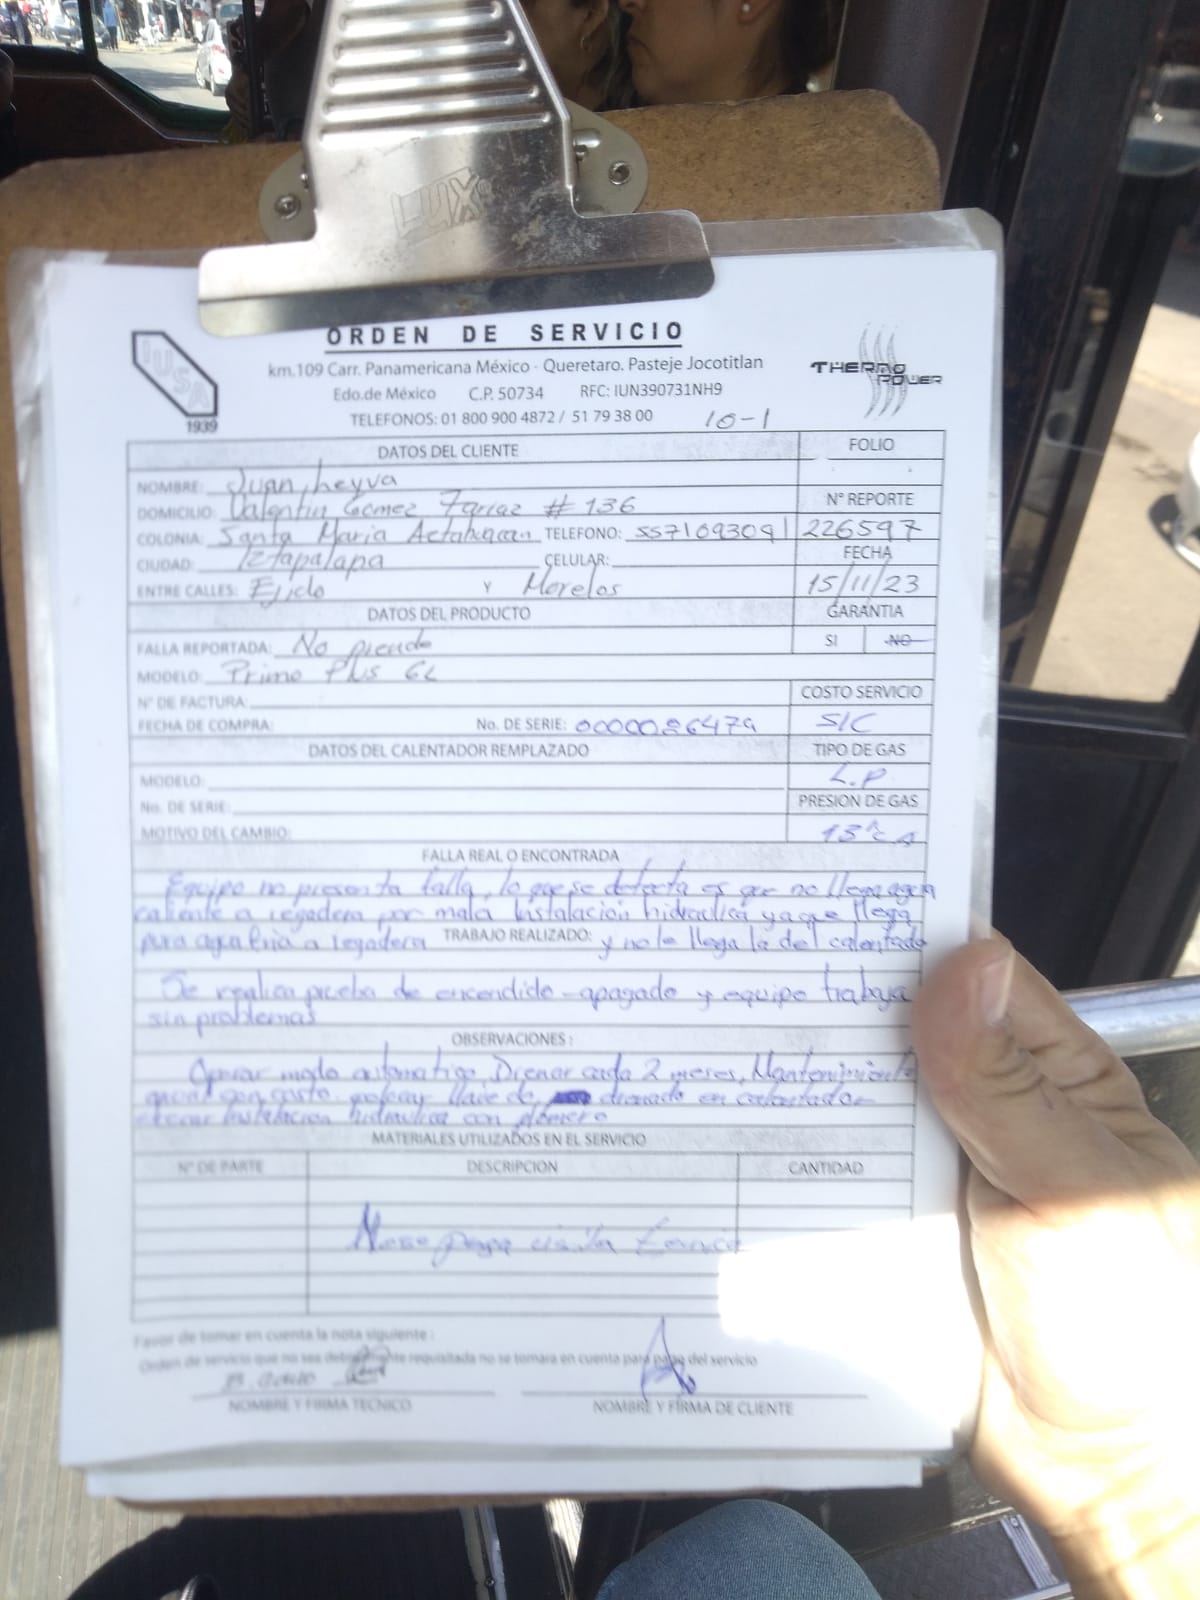 LUX
ORDEN DE SERVICIO
IUSA
1939
km.109 Carr. Panamericana México - Queretaro. Pasteje Jocotitlan
THERMO
POWER
Edo.de México C.P. 50734 RFC: IUN390731NH9
TELEFONOS: 01 800 900 4872 / 51 79 38 00 10-1
DATOS DEL CLIENTE FOLIO
NOMBRE: Juan Leyva
DOMICILIO: Valentin Gomez Farias # 136 N° REPORTE
COLONIA: Santa Maria TELEFONO: 5571093091 226597
CIUDAD: Iztapalapa CELULAR: FECHA
ENTRE CALLES: Ejido Y Morelos 15/11/23
DATOS DEL PRODUCTO GARANTIA
FALLA REPORTADA: No prende SI NO
MODELO: Primo Plus 6L
N° DE FACTURA: COSTO SERVICIO
FECHA DE COMPRA: No. DE SERIE: S/C
DATOS DEL CALENTADOR REMPLAZADO TIPO DE GAS
MODELO: L.P
No. DE SERIE: PRESION DE GAS
MOTIVO DEL CAMBIO: 13
FALLA REAL O ENCONTRADA
Equipo no presenta falla, lo que se detecta es que no llega agua
caliente a regadera por mala instalación hidraulica ya que llega
pura agua fria a regadera TRABAJO REALIZADO: y no le llega la del calentado
Se realiza prueba de encendido-apagado y equipo trabaja
sin problemas
OBSERVACIONES:
Operar modo automatico, Drenar cada 2 meses, Mantenimiento
anual con costo, llave de drenado en calentador
checar instalacion hidraulica con plomero
MATERIALES UTILIZADOS EN EL SERVICIO
N° DE PARTE DESCRIPCION CANTIDAD
No se paga visita
Favor de tomar en cuenta la nota siguiente :
Orden de servicio que no sea debidamente requisitada no se tomara en cuenta para pago del servicio
NOMBRE Y FIRMA TECNICO NOMBRE Y FIRMA DE CLIENTE